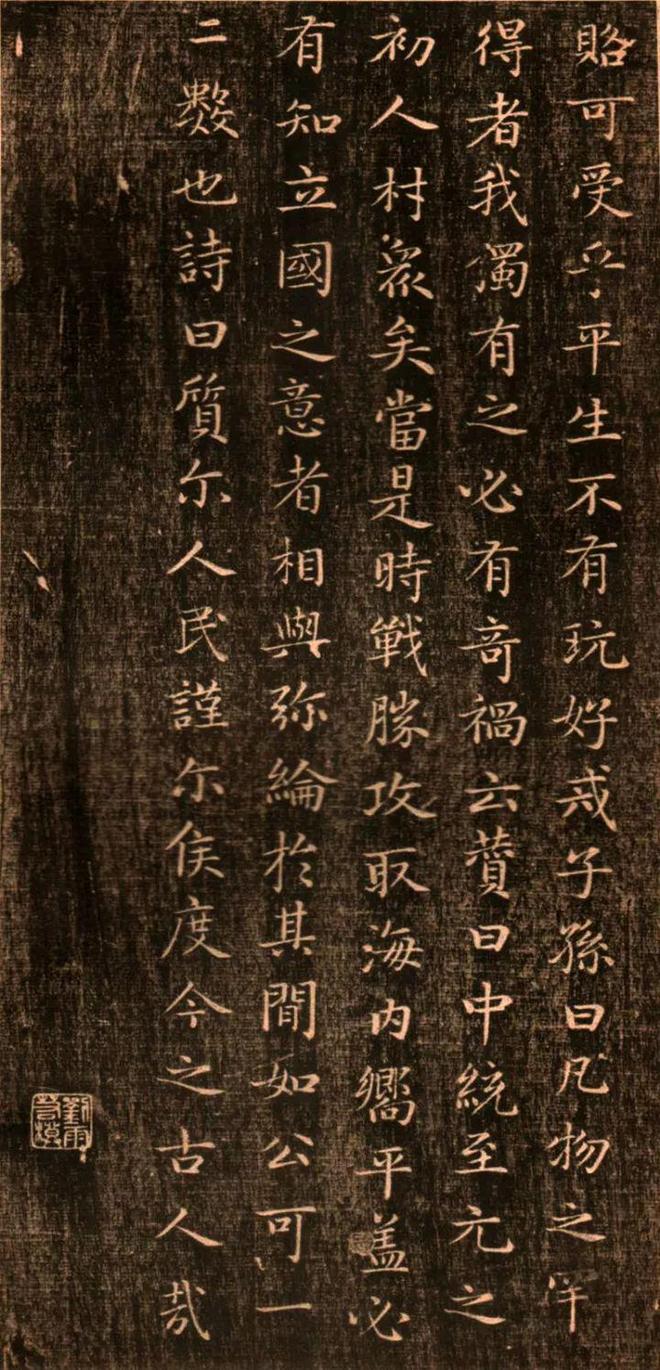 賂可受乎平生不有玩好戒子孫曰凡物之罕
得者我獨有之必有奇禍云贊曰中統至元之
初人材衆矣當是時戰勝攻取海內嚮平盖必
有知立國之意者相與弥綸於其間如公可一
二數也詩曰質尔人民謹尔侯度今之古人哉